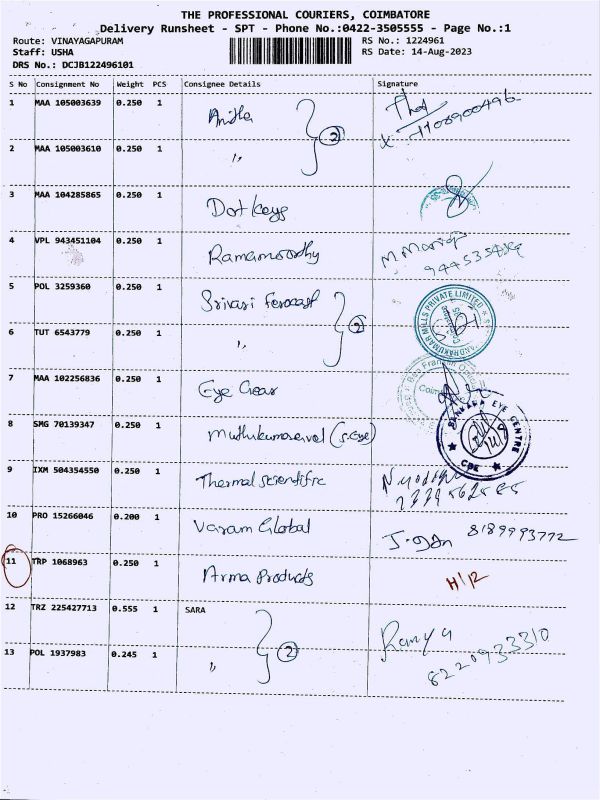 THE PROFESSIONAL COURIERS, COIMBATORE
Delivery Runsheet - SPT - Phone No.:0422-3505555 - Page No.:1
Route: VINAYAGAPURAM
Staff: USHA
DRS No.: DCJB122496101
RS No.: 1224961
RS Date: 14-Aug-2023
S No Consignment No Weight PCS Consignee Details Signature
1 MAA 105003639 0.250 1 Anitha 2
2 MAA 105003610 0.250 1 "
3 MAA 104285865 0.250 1 Dot Keys
4 VPL 943451104 0.250 1 Ramamoorthy
5 POL 3259360 0.250 1 Srivari 2
6 TUT 6543779 0.250 1 "
MILLS PRIVATE LIMITED
7 MAA 102256836 0.250 1 Eye Gear
8 SMG 70139347 0.250 1 (S.Eye)
SANKARA EYE CENTRE
CBE
9 IXM 504354550 0.250 1 Thermal Scientific
10 PRO 15266046 0.200 1 Varam Global 8189993772
11 TRP 1068963 0.250 1 Arma Products
12 TRZ 225427713 0.555 1 SARA 2 Ramya
13 POL 1937983 0.245 1 " 8220933310